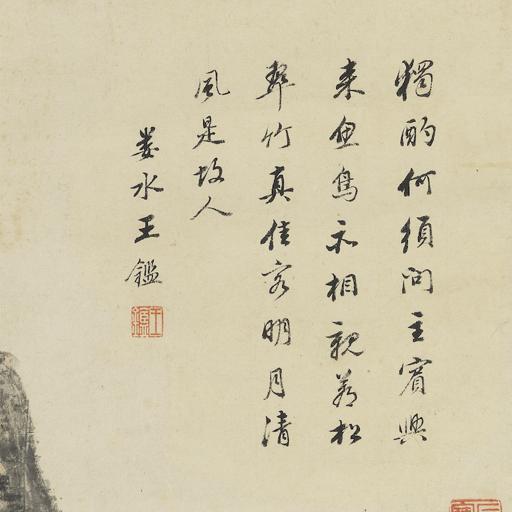 獨酌何須問主賓興
来魚鳥亦相親蒼松
翠竹真佳客明月清
風是故人
婁水王鑑
王鑑